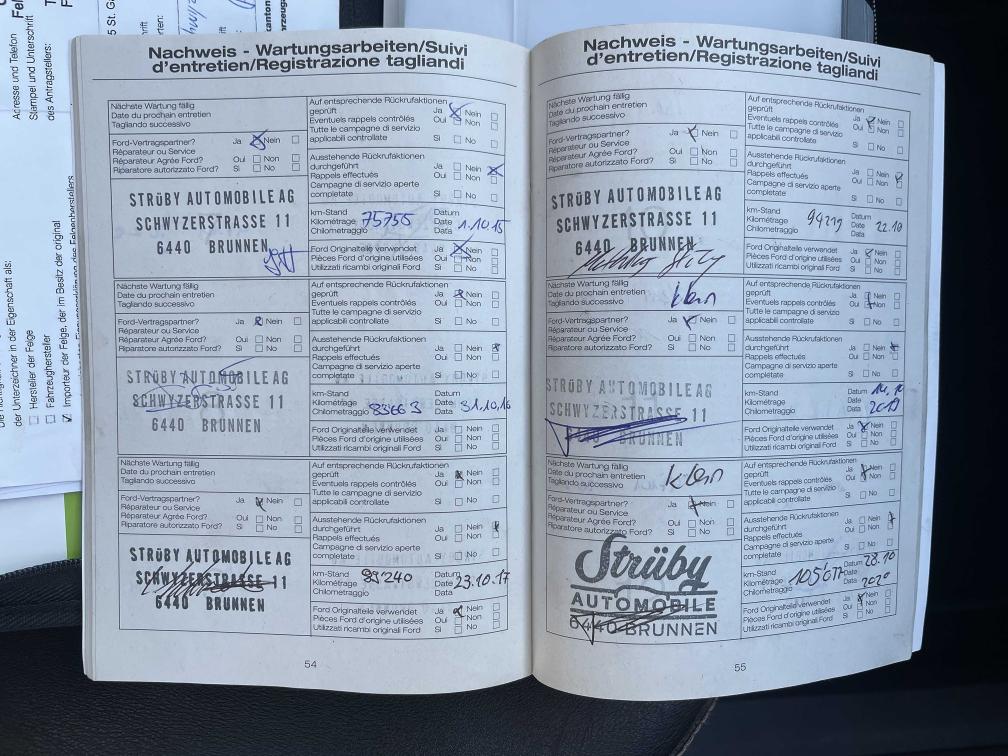 Adresse und Telefon
Stempel und Unterschrift
des Antragstellers:
der Unterzeichner in der Eigenschaft als:
Hersteller der Felge
Fahrzeughersteller
Importeur der Felge, im Besitz der original
Nachweis - Wartungsarbeiten/Suivi
d'entretien/Registrazione tagliandi
Nächste Wartung fällig
Date du prochain entretien
Tagliando successivo
Ford-Vertragspartner? Ja Nein
Réparateur ou Service
Réparateur Agrée Ford? Oui Non
Riparatore autorizzato Ford? Si No
STRÜBY AUTOMOBILE AG
SCHWYZERSTRASSE 11
6440 BRUNNEN
Auf entsprechende Rückrufaktionen
geprüft Ja Nein
Eventuels rappels contrôlés Oui Non
Tutte le campagne di servizio
applicabili controllate Si No
Ausstehende Rückrufaktionen
durchgeführt Ja Nein
Rappels effectués Oui Non
Campagne di servizio aperte
completate Si No
km-Stand Datum
Kilométrage 75755 Date 1.10.15
Chilometraggio Data
Ford Originalteile verwendet Ja Nein
Pièces Ford d'origine utilisées Oui Non
Utilizzati ricambi originali Ford Si No
Nächste Wartung fällig
Date du prochain entretien
Tagliando successivo
Ford-Vertragspartner? Ja Nein
Réparateur ou Service
Réparateur Agrée Ford? Oui Non
Riparatore autorizzato Ford? Si No
STRÜBY AUTOMOBILE AG
SCHWYZERSTRASSE 11
6440 BRUNNEN
Auf entsprechende Rückrufaktionen
geprüft Ja Nein
Eventuels rappels contrôlés Oui Non
Tutte le campagne di servizio
applicabili controllate Si No
Ausstehende Rückrufaktionen
durchgeführt Ja Nein
Rappels effectués Oui Non
Campagne di servizio aperte
completate Si No
km-Stand Datum
Kilométrage Date
Chilometraggio 83663 Data 31.10.16
Ford Originalteile verwendet Ja Nein
Pièces Ford d'origine utilisées Oui Non
Utilizzati ricambi originali Ford Si No
Nächste Wartung fällig
Date du prochain entretien
Tagliando successivo
Ford-Vertragspartner? Ja Nein
Réparateur ou Service
Réparateur Agrée Ford? Oui Non
Riparatore autorizzato Ford? Si No
STRÜBY AUTOMOBILE AG
SCHWYZERSTRASSE 11
6440 BRUNNEN
Auf entsprechende Rückrufaktionen
geprüft Ja Nein
Eventuels rappels contrôlés Oui Non
Tutte le campagne di servizio
applicabili controllate Si No
Ausstehende Rückrufaktionen
durchgeführt Ja Nein
Rappels effectués Oui Non
Campagne di servizio aperte
completate Si No
km-Stand Datum
Kilométrage 89240 Date 23.10.17
Chilometraggio Data
Ford Originalteile verwendet Ja Nein
Pièces Ford d'origine utilisées Oui Non
Utilizzati ricambi originali Ford Si No
54
Nachweis - Wartungsarbeiten/Suivi
d'entretien/Registrazione tagliandi
Nächste Wartung fällig
Date du prochain entretien
Tagliando successivo
Ford-Vertragspartner? Ja Nein
Réparateur ou Service
Réparateur Agrée Ford? Oui Non
Riparatore autorizzato Ford? Si No
STRÜBY AUTOMOBILE AG
SCHWYZERSTRASSE 11
6440 BRUNNEN
Auf entsprechende Rückrufaktionen
geprüft Ja Nein
Eventuels rappels contrôlés Oui Non
Tutte le campagne di servizio
applicabili controllate Si No
Ausstehende Rückrufaktionen
durchgeführt Ja Nein
Rappels effectués Oui Non
Campagne di servizio aperte
completate Si No
km-Stand Datum
Kilométrage 94219 Date 22.10
Chilometraggio Data
Ford Originalteile verwendet Ja Nein
Pièces Ford d'origine utilisées Oui Non
Utilizzati ricambi originali Ford Si No
Nächste Wartung fällig
Date du prochain entretien klein
Tagliando successivo
Ford-Vertragspartner? Ja Nein
Réparateur ou Service
Réparateur Agrée Ford? Oui Non
Riparatore autorizzato Ford? Si No
STRÜBY AUTOMOBILE AG
SCHWYZERSTRASSE 11
6440 BRUNNEN
Auf entsprechende Rückrufaktionen
geprüft Ja Nein
Eventuels rappels contrôlés Oui Non
Tutte le campagne di servizio
applicabili controllate Si No
Ausstehende Rückrufaktionen
durchgeführt Ja Nein
Rappels effectués Oui Non
Campagne di servizio aperte
completate Si No
km-Stand Datum
Kilométrage Date
Chilometraggio Data 2019
Ford Originalteile verwendet Ja Nein
Pièces Ford d'origine utilisées Oui Non
Utilizzati ricambi originali Ford Si No
Nächste Wartung fällig
Date du prochain entretien klein
Tagliando successivo
Ford-Vertragspartner? Ja Nein
Réparateur ou Service
Réparateur Agrée Ford? Oui Non
Riparatore autorizzato Ford? Si No
Strüby
AUTOMOBILE
6440 BRUNNEN
Auf entsprechende Rückrufaktionen
geprüft Ja Nein
Eventuels rappels contrôlés Oui Non
Tutte le campagne di servizio
applicabili controllate Si No
Ausstehende Rückrufaktionen
durchgeführt Ja Nein
Rappels effectués Oui Non
Campagne di servizio aperte
completate Si No
km-Stand Datum 28.10
Kilométrage Date
Chilometraggio Data 2020
Ford Originalteile verwendet Ja Nein
Pièces Ford d'origine utilisées Oui Non
Utilizzati ricambi originali Ford Si No
55